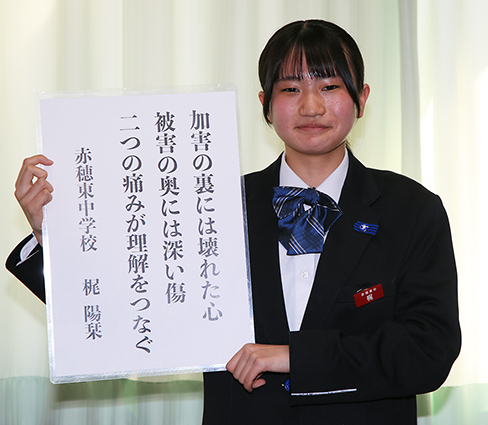 加害の裏には壊れた心
被害の奥には深い傷
二つの痛みが理解をつなぐ
赤穂東中学校　梶　陽栞
梶